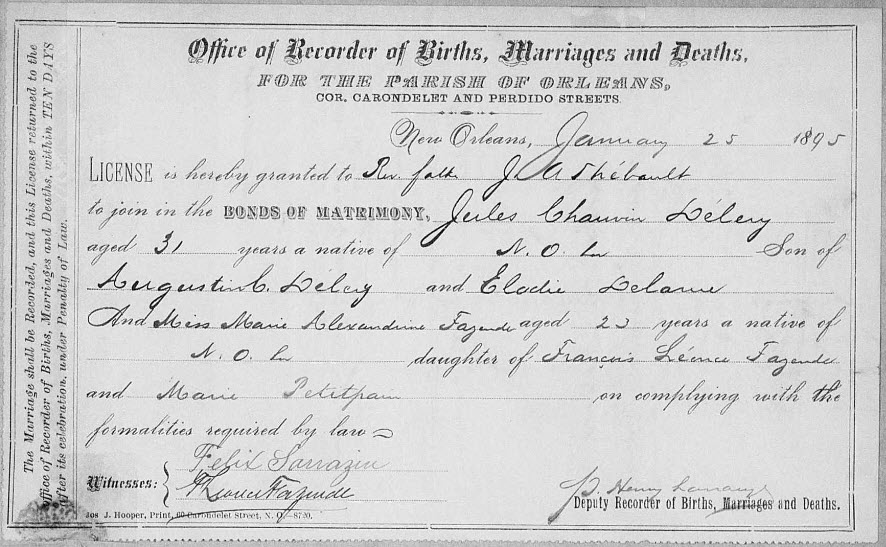 The Marriage shall be Recorded, and this License returned to the
Office of Recorder of Births, Marriages and Deaths, within TEN DAYS
after its celebration, under Penalty of Law.
Office of Recorder of Births, Marriages and Deaths,
FOR THE PARISH OF ORLEANS,
COR. CARONDELET AND PERDIDO STREETS.
New Orleans, January 25 1895
LICENSE is hereby granted to Rev. fath. J A Thébault
to join in the BONDS OF MATRIMONY, Jules Chauvin Déléry
aged 31 years a native of N. O. La Son of
Augustin C. Déléry and Elodie Delarue
And Miss Marie Alexandrine Fazende aged 23 years a native of
N. O. La daughter of François Léonce Fazende
and Marie Petitpain on complying with the
formalities required by law
Witnesses: Felix Sarrazin
Fazende
P. Henry
Deputy Recorder of Births, Marriages and Deaths.
Jos J. Hooper, Print, 60 Carondelet Street, N. O.—8720.